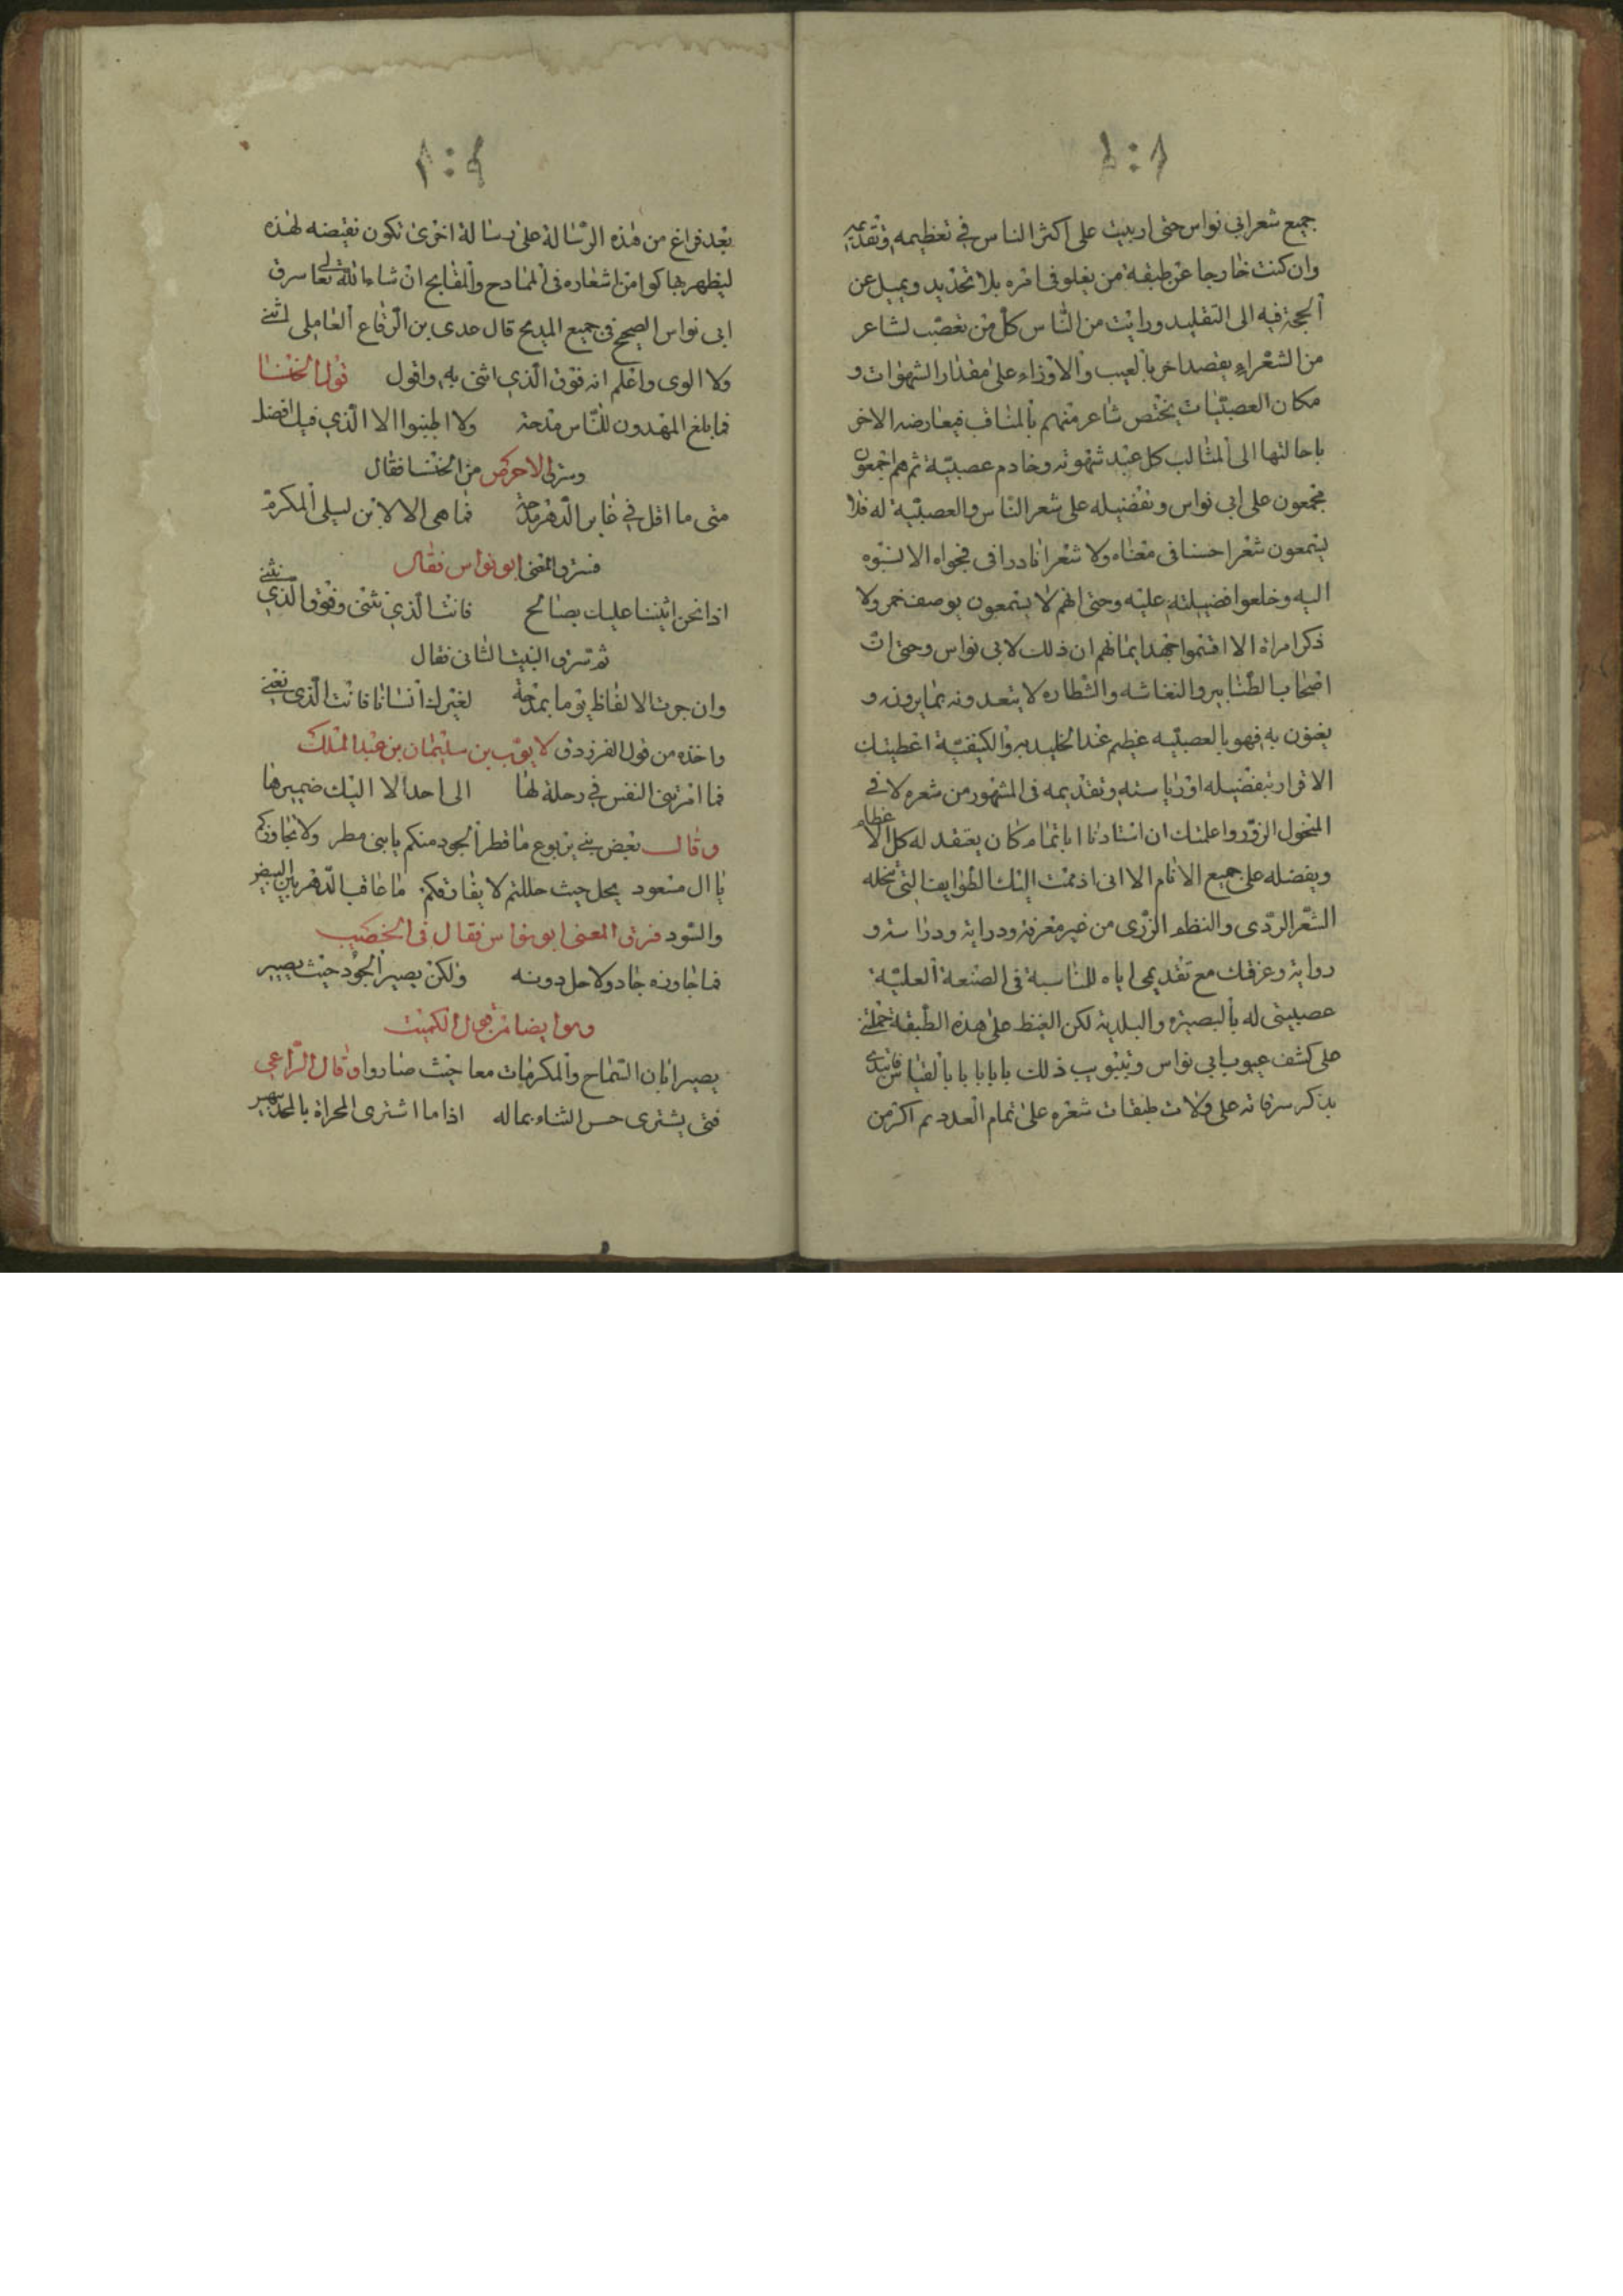 جميع شعر ابي نواس حتى اربيت على اكثر الناس في تعظيمه وتقديمه
وان كنت خارجا عن طبقة من يغلو في امره بلا تحديد ويميل عن
الحجة فيه الى التقليد ورايت من الناس كل من تعصب لشاعر
من الشعراء يقصد اخر بالعيب والازراء على مقدار الشهوات و
مكان العصبيات يختص شاعر منهم بالمناقب فيعارضه الاخر
باحالتها الى المثالب كل عبد شهوته وخادم عصبية ثم هم اجمعون
مجمعون على ابي نواس وتفضيله على شعر الناس والعصبية له فلا
يسمعون شعرا حسنا في معناه ولا شعرا نادرا في فحواه الا نسبوه
اليه وخلعوا فضيلته عليه وحتى انهم لا يسمعون بوصف خمر ولا
ذكر امراة الا اقسموا جهد ايمانهم ان ذلك لابي نواس وحتى ان
اصحاب الطنابير والنغاشه والشطاره لا يتعدونه بما يرونه و
يغنون به فهو بالعصبيه عظيم عند الخليديه والكيفية اعطيتك
الاقرار بتفضيله اورياسته وتقديمه في المشهور من شعره لا في
المنحول المزور واعلمتك ان استادنا اباتمام كان يعتقد له كل الاعظام
ويفضله على جميع الانام الا اني اذممت اليك الطوايف التي تنحله
الشعر الردى والنظم الزرى من غير معرفة ودراية ودراسة و
رواية وعرفتك مع تقديمي اياه للناسبة في الصنعة العلية
عصبيتي له بالبصيرة والبلدية لكن الغيظ على هذه الطبقة حملني
على كشف عيوب ابي نواس وتبويب ذلك بابا بابا بالقياس فابتدى
بذكر سرقاته على ولات طبقات شعره على تمام العدد ثم اكر من
بعد فراغ من هذه الرسالة على رسالة اخرى تكون نقيضه لهذه
ليظهر بها كوامن اشعاره في الممادح والمقابح ان شاء الله تعالى سرق
ابي نواس الصحيح في جميع المديح قال عدى بن الرقاع العاملى اثني
ولا الوى واعلم انه فوق الذي اثنى به واقول قول الخنسا
فما بلغ المهدون للناس مدحة ولا اطنبوا الا الذي فيك افضل
وسرق الاحوص من الخنسا فقال
متى ما اقل في غابر الدهر مدحة فما هى الا لابن ليلى المكرم
فسرق المعنى ابو نواس فقال
اذا نحن اثنينا عليك بصالح فانت الذي نثنى وفوق الذي نثني
ثم سرق البيت الثاني فقال
وان جرت الالفاظ يوما بمدحة لغيرك انسانا فانت الذي نعني
واخذه من قول الفرزدق لايوب بن سليمان بن عبد الملك
فما امرتني النفس في رحلة لها الى احد الا اليك ضميرها
وقال بعض بني يربوع ما قطر الجود منكم يا بنى مطر ولا تجاوزكم
يا ال مسعود يحل حيث حللتم لا يفارقكم ما عاقب الدهر بين البيض
والسود فسرق المعنى ابو نواس فقال في الخصيب
فما جاوزه جاد ولا حل دونه ولكن يصير الجود حيث يصير
وهو ايضا من قول الكميت
يصير ابان السماح والمكرمات معا حيث صاروا وقال الراعي
فتى يشترى حسن الثناء بماله اذا ما اشترى المخزاة بالمجد بيهس